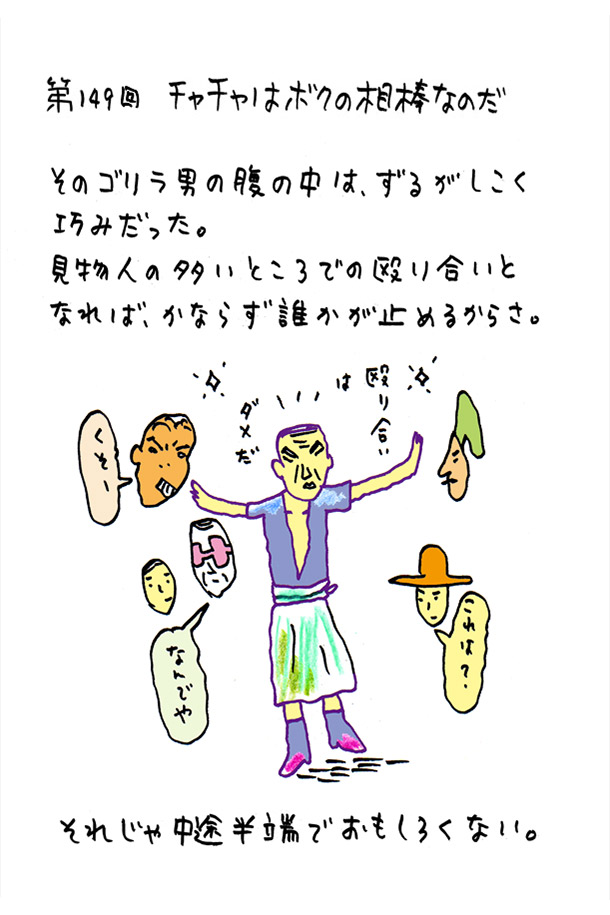 第149回 チャチャはボクの相棒なのだ
そのゴリラ男の腹の中は、ずるがしこく
巧みだった。
見物人の多いところでの殴り合いと
なれば、かならず誰かが止めるからさ。
殴り合い
は
ダメだ
くそー
なんでや
これは?
それじゃ中途半端でおもしろくない。